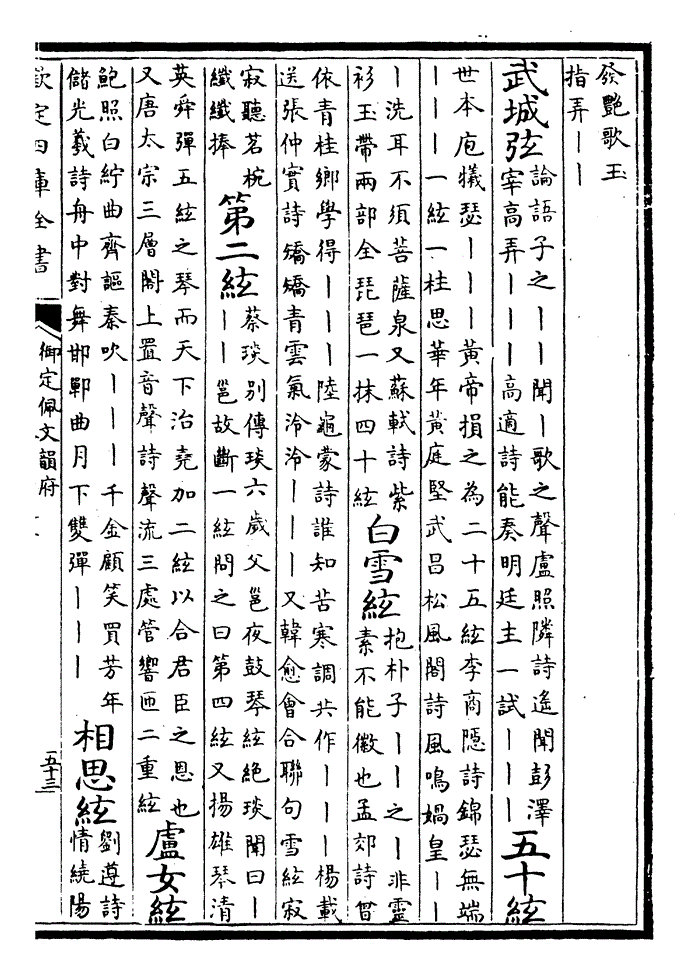 發艷歌玉
指弄｜｜
武城弦
論語子之｜｜聞｜歌之聲盧照隣詩遥聞彭澤
宰高弄｜｜｜高適詩能奏明廷主一試｜｜｜
五十絃
世本庖犧瑟｜｜｜黄帝損之為二十五絃李商隱詩錦瑟無端
｜｜｜一絃一柱思華年黄庭堅武昌松風閣詩風鳴媧皇｜｜
｜洗耳不須菩薩泉又蘇軾詩紫
衫玉帶兩部全琵琶一抹四十絃
白雪絃
抱朴子｜｜之｜非靈
素不能徽也孟郊詩曾
依青桂鄉學得｜｜｜陸龜蒙詩誰知苦寒調共作｜｜｜楊載
送張仲實詩矯矯青雲氣泠泠｜｜｜又韓愈會合聯句雪絃寂
寂聽茗椀
纖纖捧
第二絃
蔡琰别傳琰六歳父邕夜鼓琴絃絶琰聞曰｜
｜｜邕故斷一絃問之曰第四絃又揚雄琴清
英舜彈五絃之琴而天下治堯加二絃以合君臣之恩也
又唐太宗三層閣上置音聲詩聲流三處管響匝二重絃
盧女絃
鮑照白紵曲齊謳秦吹｜｜｜千金顧笑買芳年
儲光羲詩舟中對舞邯鄲曲月下雙彈｜｜｜
相思絃
劉遵詩
情繞陽
欽定四庫全書
御定佩文韻府
五十三